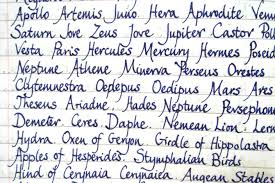 Apollo Artemis Juno Hera Aphrodite
Saturn Jove Zeus Jove Jupiter Castor
Vesta Paris Hercules Mercury Hermes
Neptune Athene Minerva Perseus Orestes
Clytemnestra Oedepus Oedipus Mars Ares
Theseus Ariadne. Hades Neptune Persephone
Demeter Ceres Daphe Nemean Lion
Hydra Oxen of Geryon Girdle of Hippolastra
Apples of Hesperides. Stymphalian Birds
Hind of Ceryneia Augean Stables